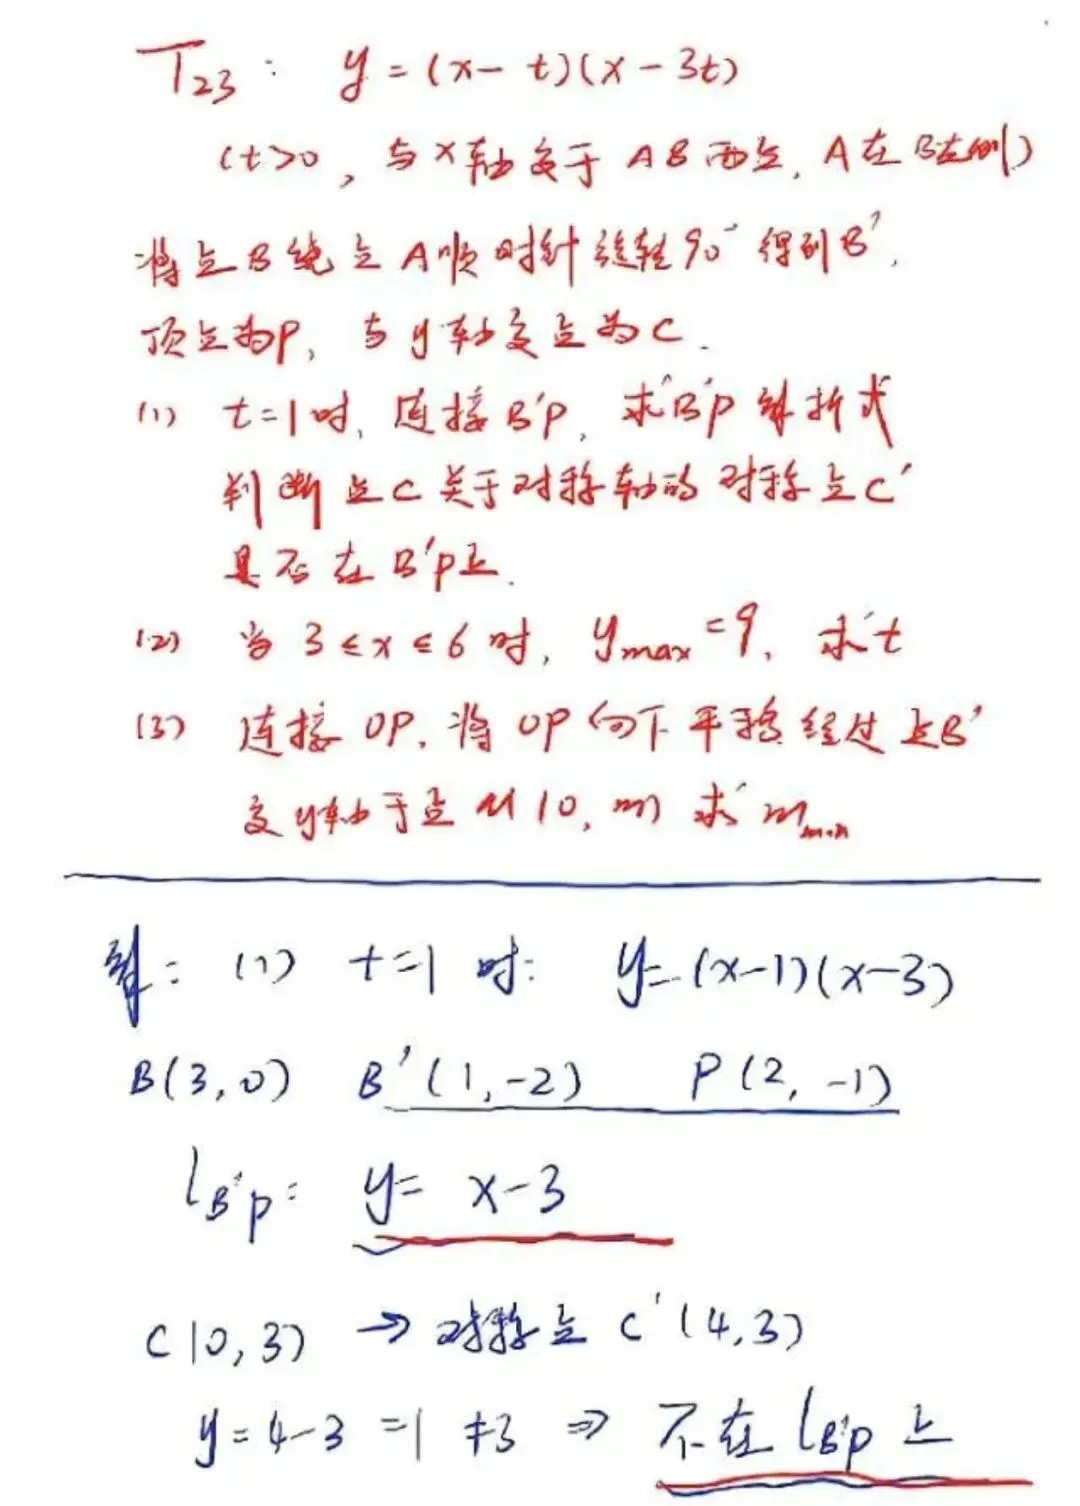 T23: y=(x-t)(x-3t)
(t>0, 与x轴交于AB两点, A在B左侧)
将点B绕点A顺时针旋转90°得到B',
顶点为P, 与y轴交点为C.
(1) t=1时, 连接B'P, 求B'P解析式
判断点C关于对称轴的对称点C'
是否在B'P上.
(2) 当3≤x≤6时, ymax=9, 求t
(3) 连接OP, 将OP向下平移经过点B'
交y轴于点M(0,m) 求mmin
解: (1) t=1时: y=(x-1)(x-3)
B(3,0) B'(1,-2) P(2,-1)
lB'P: y=x-3
C(0,3) → 对称点C'(4,3)
y=4-3=1≠3 ⇒ 不在lB'P上